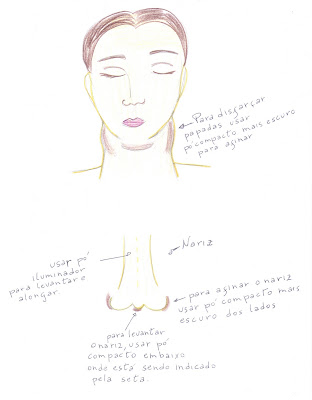 Para disfarçar
papadas usar
pó compacto mais escuro
para afinar
Nariz
usar pó
iluminador
para levantar e
alongar.
para afinar o nariz
usar pó compacto mais
escuro dos lados
para levantar
o nariz, usar pó
compacto embaixo
onde está sendo indicado
pela seta.